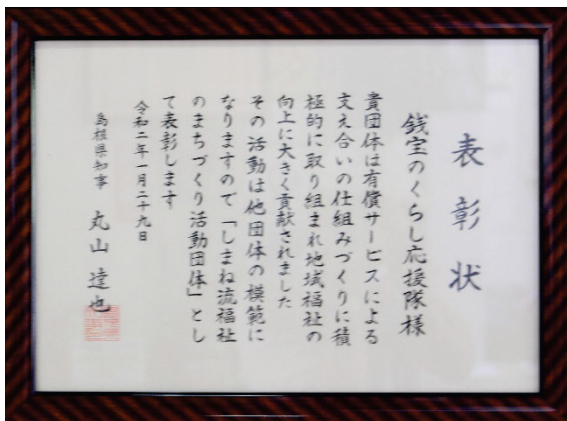 表彰状
銭宝のくらし応援隊様
貴団体は有償サービスによる
支え合いの仕組みづくりに積
極的に取り組まれ地域福祉の
向上に大きく貢献されました
その活動は他団体の模範に
なりますので「しまね流福祉
のまちづくり活動団体」とし
て表彰します
令和二年一月二十九日
島根県知事 丸山達也